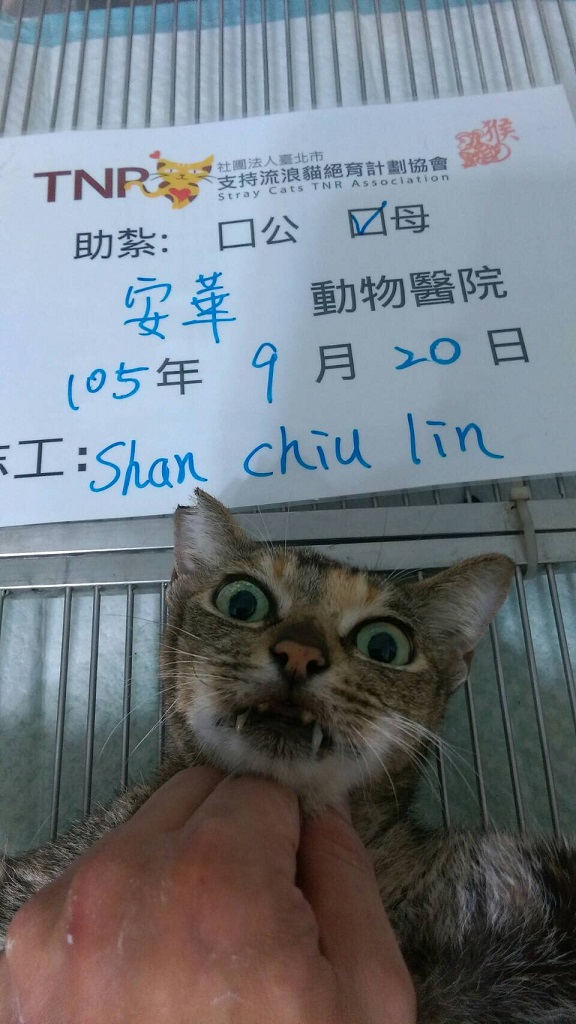 TNR 社團法人臺北市
支持流浪貓絕育計劃協會
Stray Cats TNR Association
猴
助紮: 口公 ☑母
安華 動物醫院
105年 9月 20日
志工:Shan chiu lin